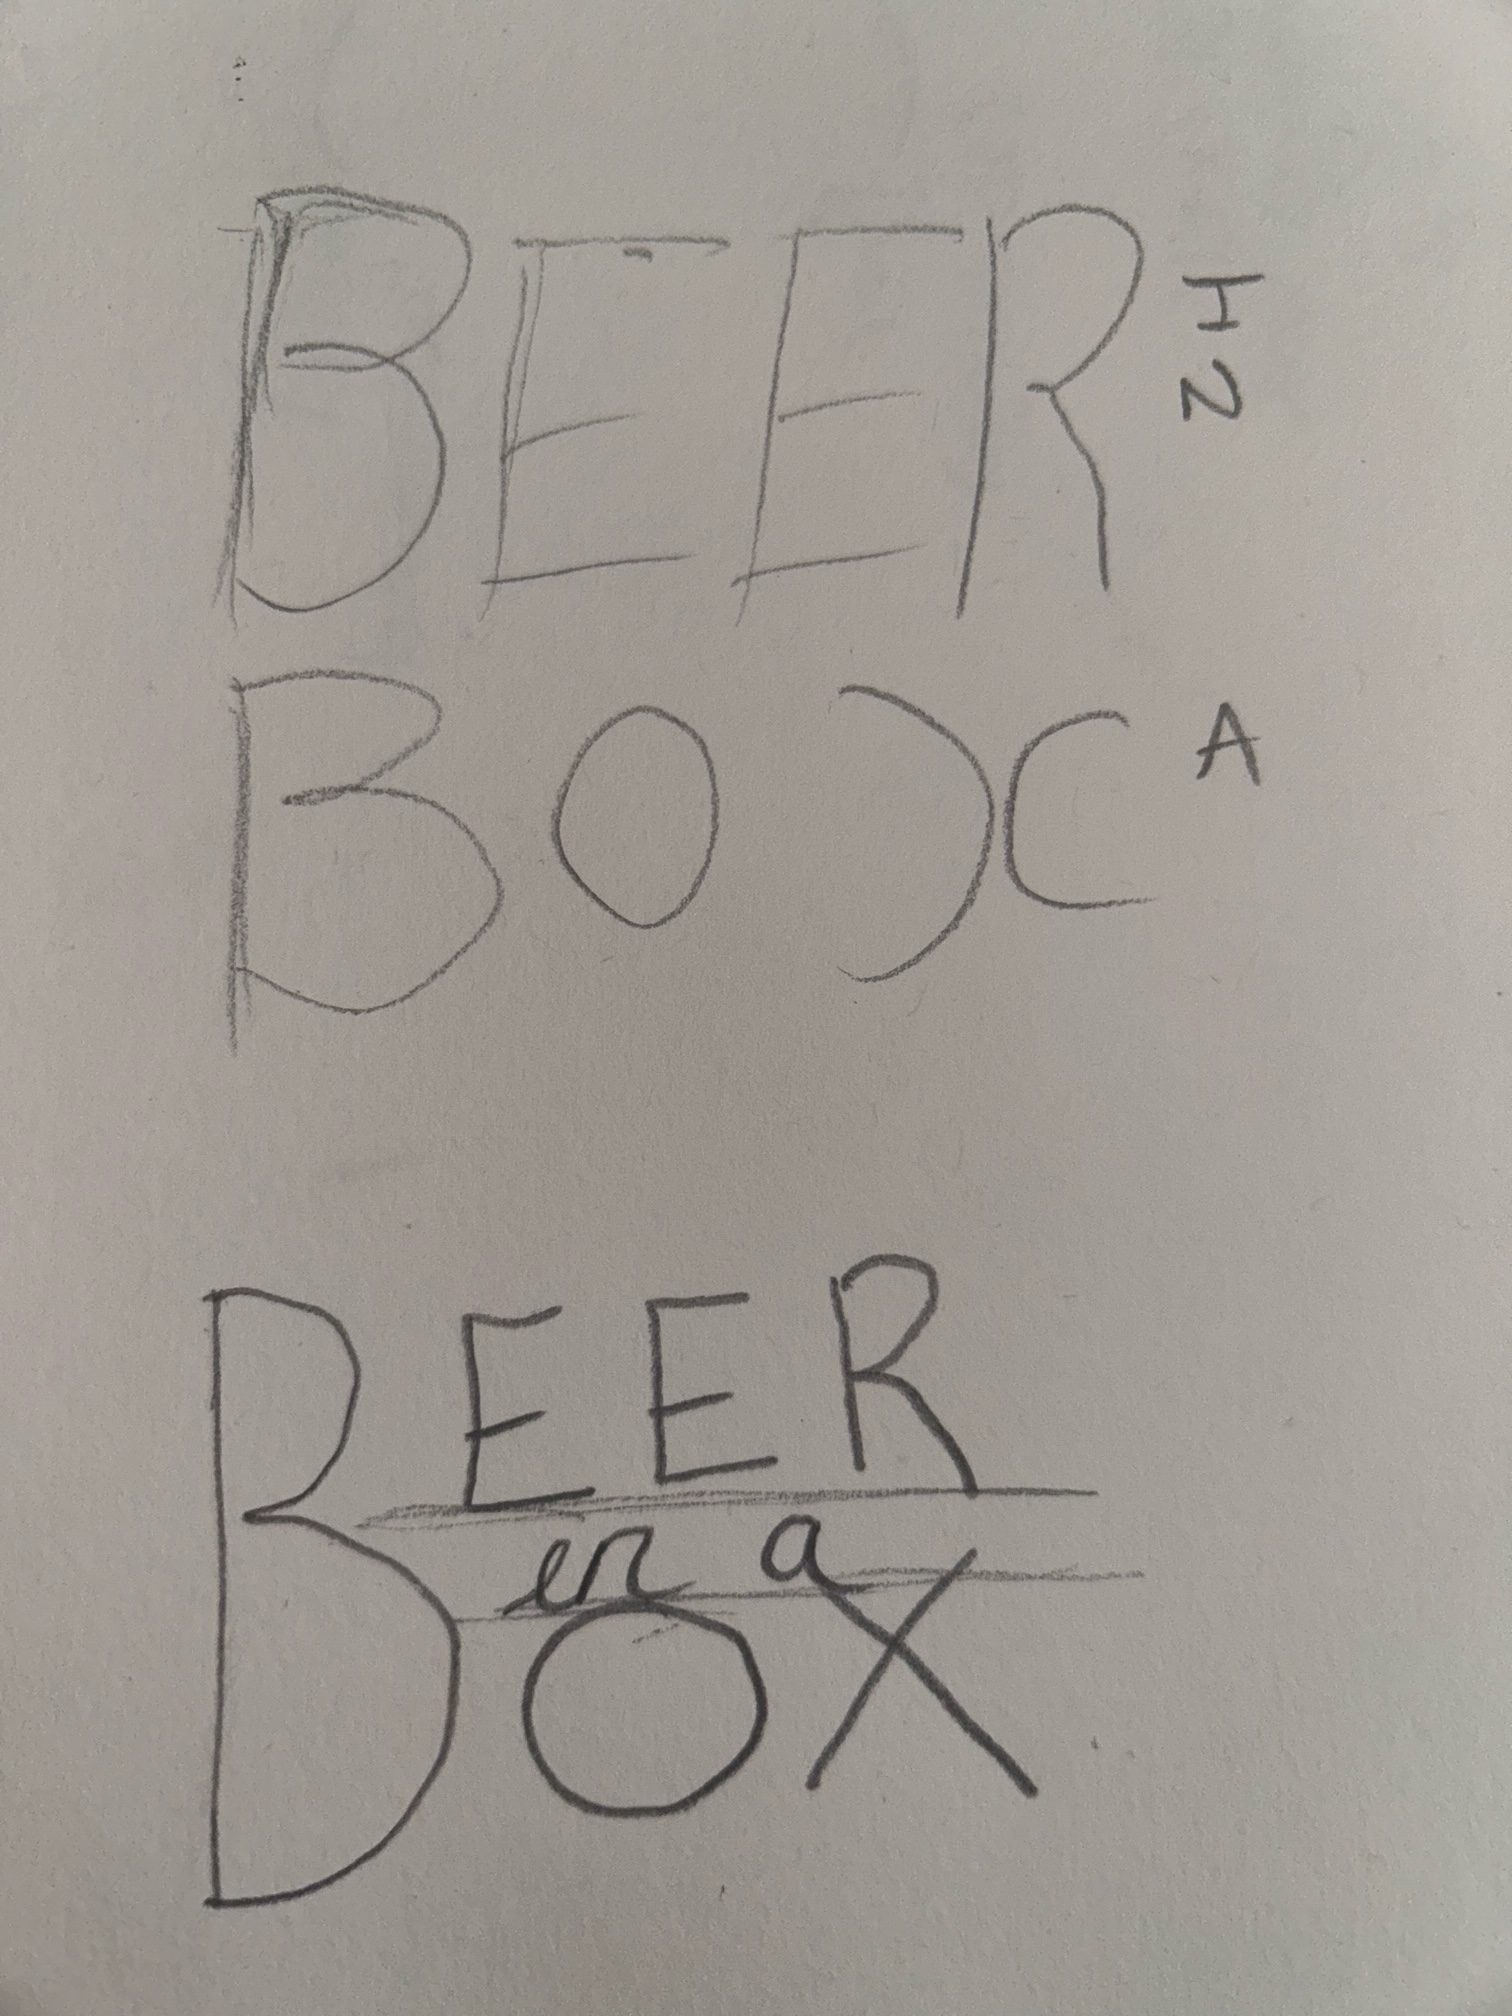 BEER IN
BOX A
BEER
in a
BOX